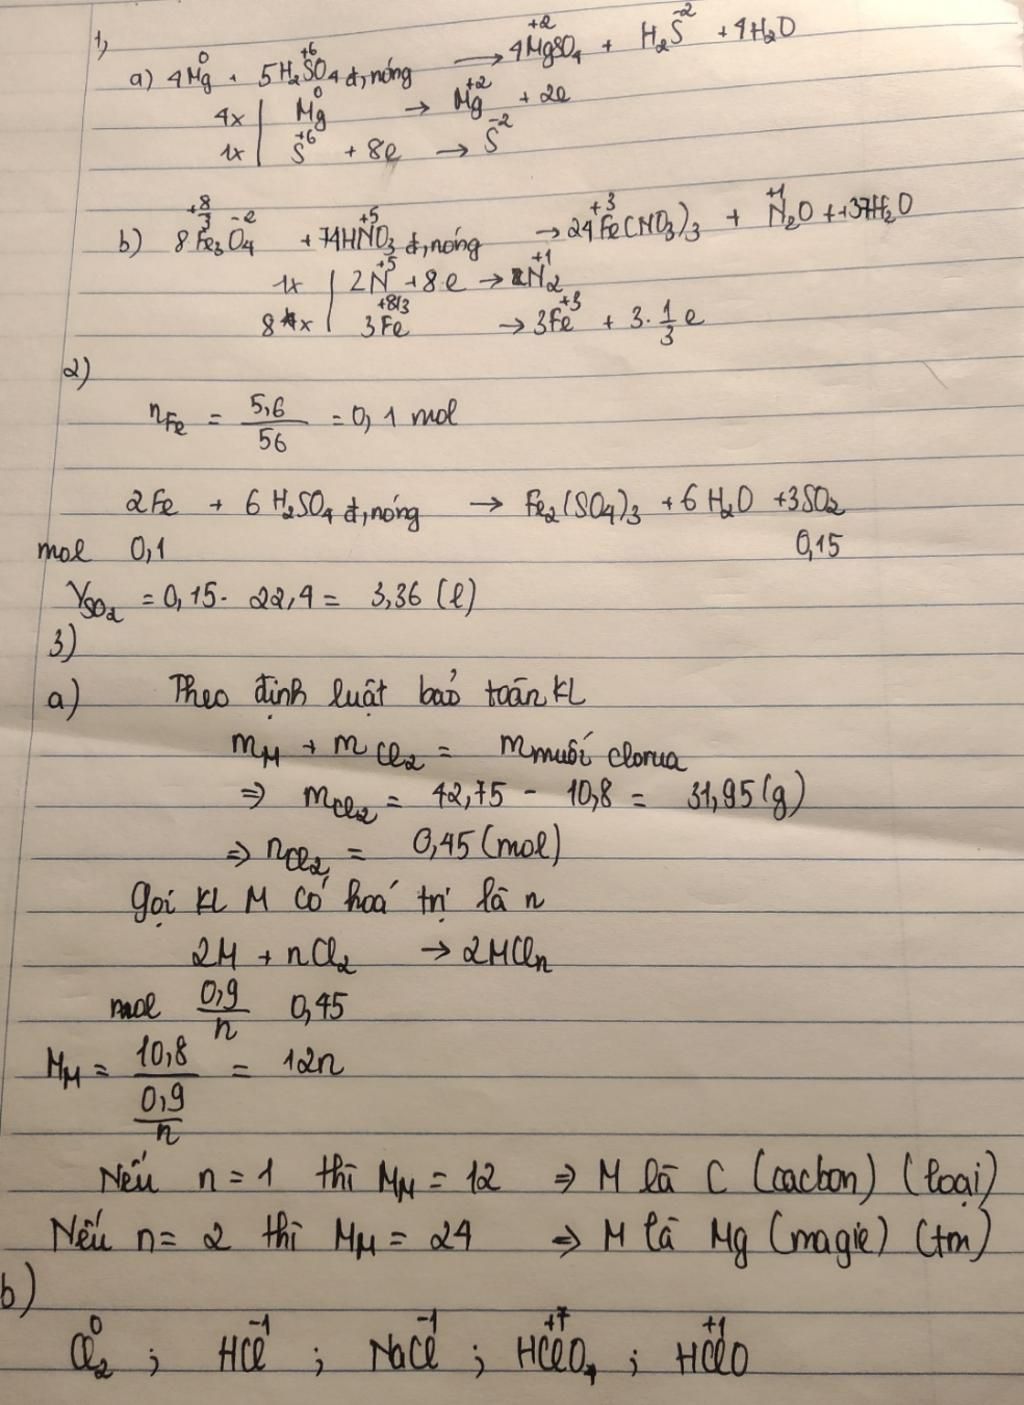 1,
a) 4Mg⁰ + 5H₂S⁺⁶O₄ đ,nóng → 4Mg⁺²SO₄ + H₂S⁻² + 4H₂O
4x | Mg⁰ → Mg⁺² + 2e
1x | S⁺⁶ + 8e → S⁻²
b) 8Fe₃⁺⁸/³O₄⁻² + 74HN⁺⁵O₃ đ,nóng → 24Fe⁺³(NO₃)₃ + N₂⁺¹O + +37H₂O
1x | 2N⁺⁵ + 8e → N₂⁺¹
8 x | 3Fe⁺⁸/³ → 3Fe⁺³ + 3.1/3 e
2)
nFe = 5,6/56 = 0,1 mol
2Fe + 6H₂SO₄ đ,nóng → Fe₂(SO₄)₃ + 6H₂O + 3SO₂
mol 0,1 0,15
VSO₂ = 0,15. 22,4 = 3,36 (l)
3)
a) Theo định luật bảo toàn KL
mM + mCl₂ = mmuối clorua
⇒ mCl₂ = 42,75 - 10,8 = 31,95(g)
⇒ nCl₂ = 0,45 (mol)
Gọi KL M có hoá trị là n
2M + nCl₂ → 2MClₙ
mol 0,9/n 0,45
MM = 10,8/(0,9/n) = 12n
Nếu n = 1 thì MM = 12 ⇒ M là C (cacbon) (loại)
Nếu n = 2 thì MM = 24 ⇒ M là Mg (magie) (tm)
b)
Cl₂⁰ ; HCl⁻¹ ; NaCl⁻¹ ; HCl⁺⁷O₄ ; HCl⁺¹O